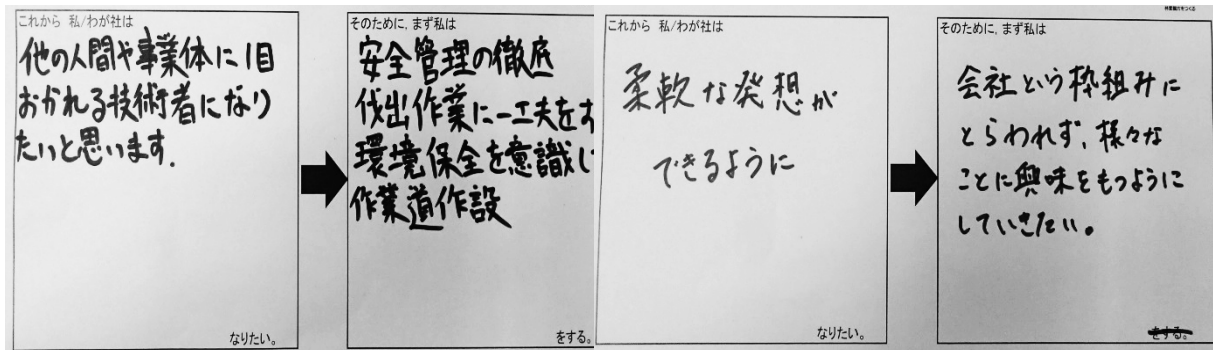 これから 私/わが社は
他の人間や事業体に1目
おかれる技術者になり
たいと思います.
なりたい。
そのために, まず私は
安全管理の徹底
伐出作業に一工夫をす
環境保全を意識し
作業道作設
をする。
これから 私/わが社は
柔軟な発想が
できるように
なりたい。
そのために, まず私は
会社という枠組みに
とらわれず、様々な
ことに興味をもつように
していきたい。
をする。